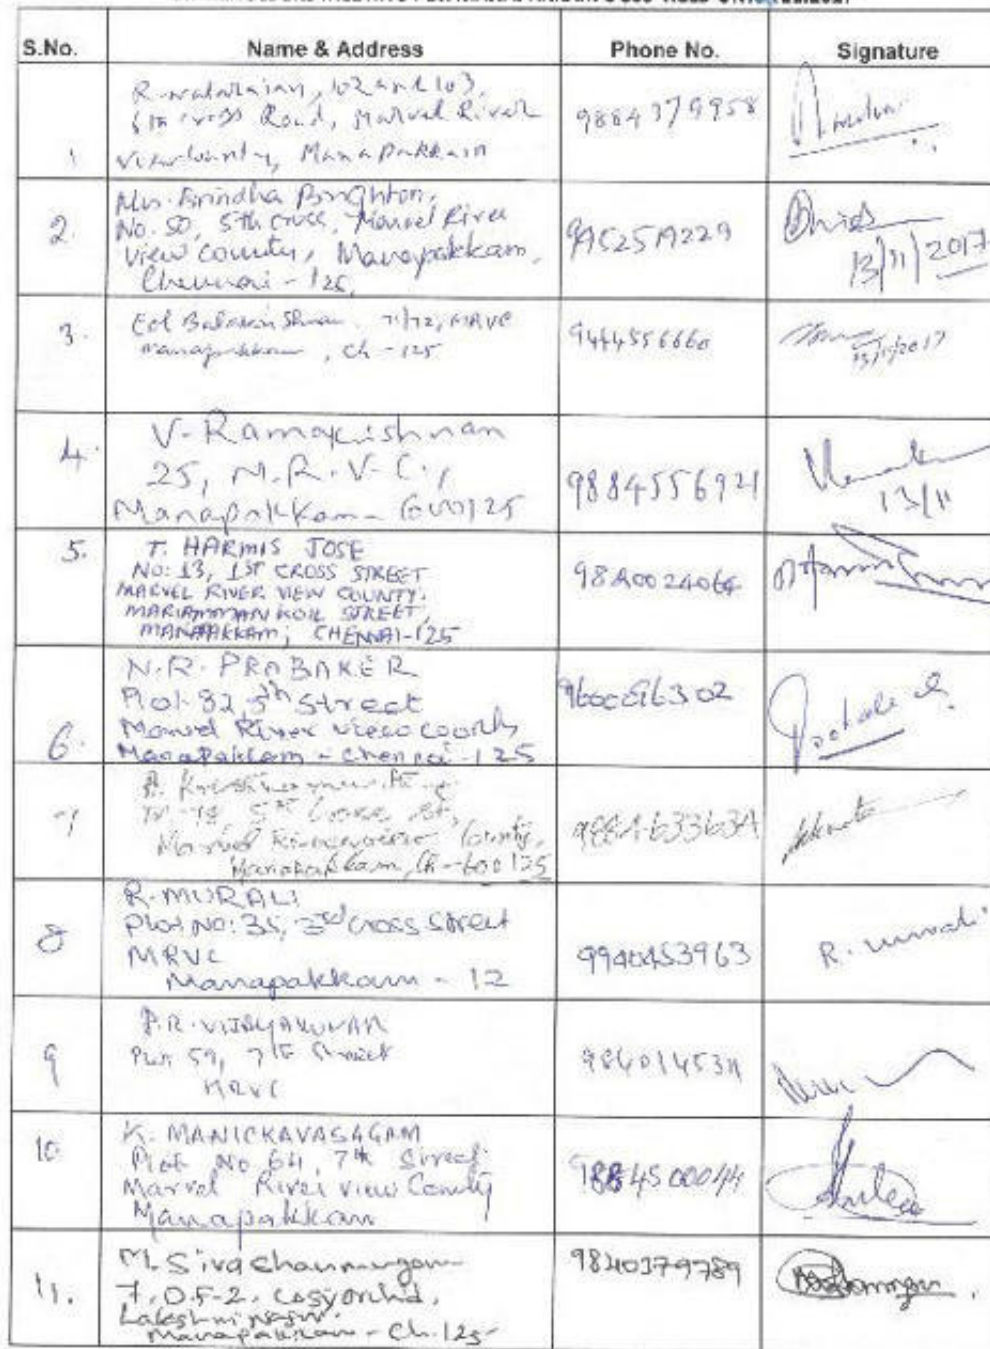 S.No. Name & Address Phone No. Signature
1 R. Natarajan, 102 and 103,
5th Cross Road, Marvel River
View County, Manapakkam
9884379958
2. Mrs. Brindha Brighton,
No. 50, 5th Cross, Marvel River
View County, Manapakkam,
Chennai - 125.
13/11/2017
3. Col Balakrishnan 71/72, MRVC
Manapakkam, Ch - 125
9444556660
13/11/2017
4. V. Ramakrishnan
25, M.R.V.C.,
Manapakkam - 600125
9884556921
13/11
5. T. HARMIS JOSE
NO: 13, 1ST CROSS STREET
MARVEL RIVER VIEW COUNTY.
MARIAMMAN KOIL STREET,
MANAPAKKAM, CHENNAI-125
6. N.R. PRABAKER
Plot 82, 5th Street
Marvel River view county
Manapakkam - Chennai - 125
7
Marvel Riverview County,
Manapakkam, Ch - 600125
8 R. MURALI
Plot No: 35, 3rd Cross Street
MRVC
Manapakkam - 12
9940453963 R. Murali
9 P.R. VIJAYAKUMAR
Plot 59, 7th Street
MRVC
10 K. MANICKAVASAGAM
Plot No 64, 7th Street
Marvel River View County
Manapakkam
9884500044
11. M. Sivashanmugam
7, O.F-2, Cosy orchid,
Lakshmi nagar,
Manapakkam - Ch. 125
9840379789